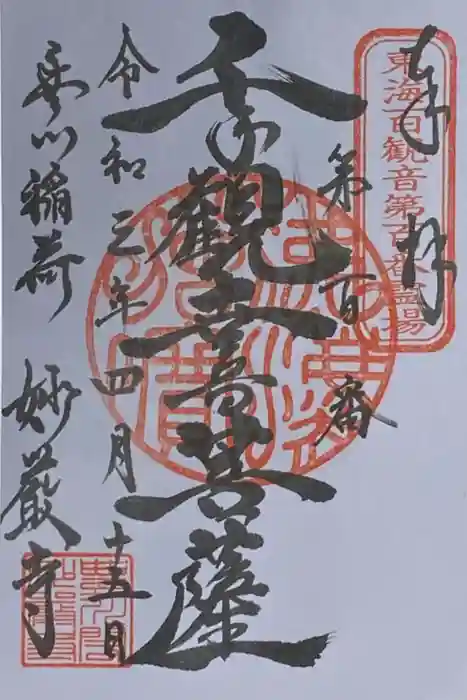 奉拝
東海百観音第百番霊場
第百番
千手觀音菩薩
令和三年四月十五日
豊川稲荷 妙厳寺